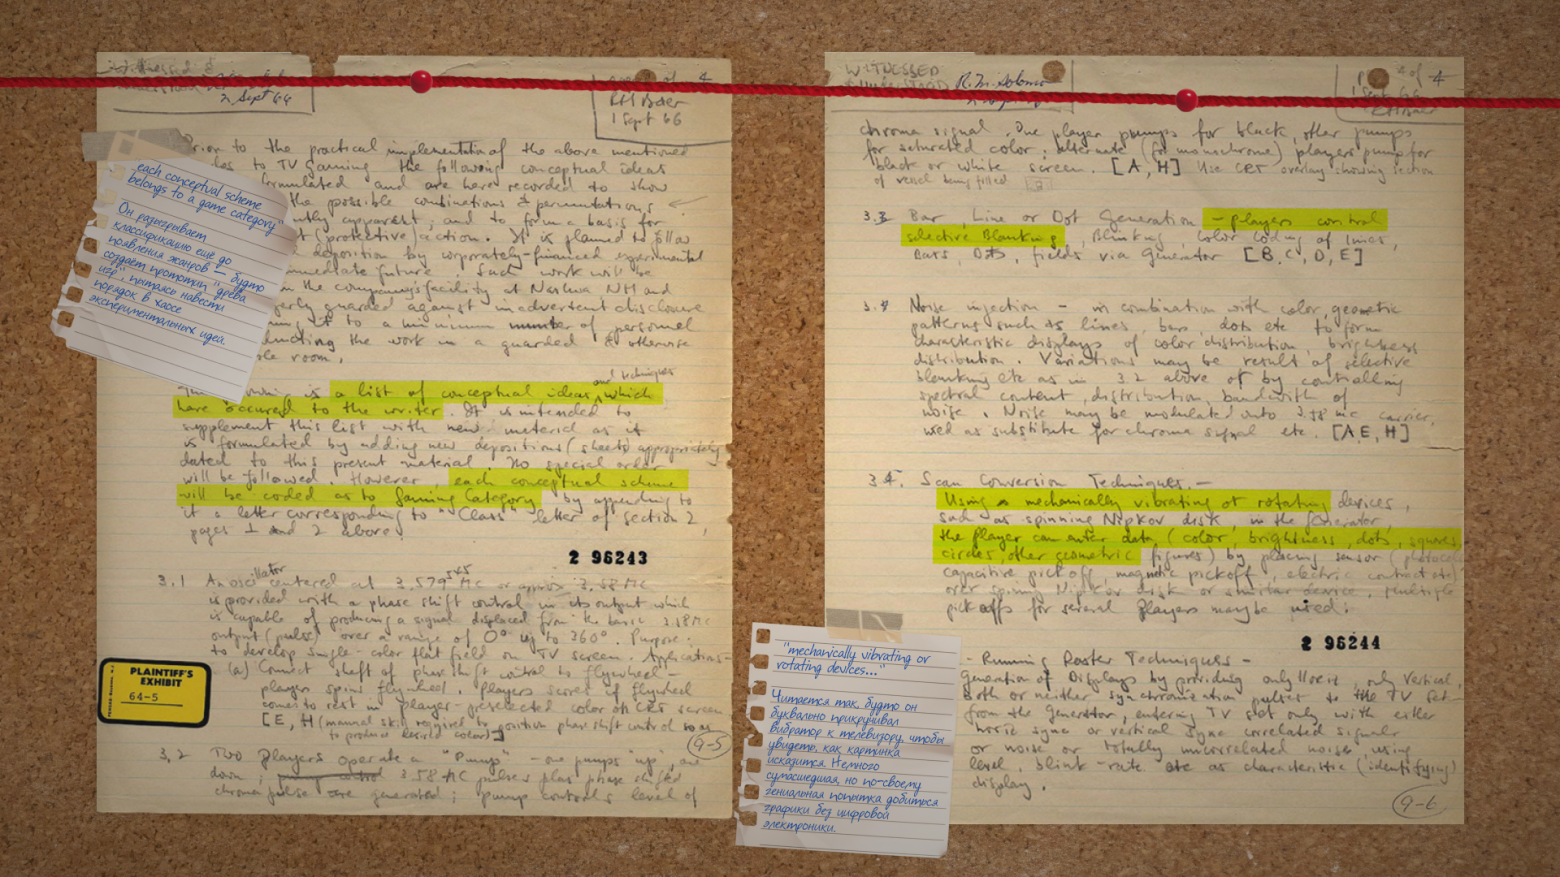 2 Sept 66
4
RH Baer
1 Sept 66
Prior to the practical implementation of the above mentioned
to TV Gaming the following conceptual ideas
formulated and are here recorded to show
the possible combinations & permutations
apparent; and to form a basis for
(protective) action. It is planned to follow
deposition by corporately-financed experimental
immediate future. Such work will be
in the company's facility at Nashua NH and
guarded against inadvertent disclosure
it to a minimum number of personnel
the work in a guarded & otherwise
room.
is a list of conceptual ideas and techniques which
have occured to the writer. It is intended to
supplement this list with new material as it
is formulated by adding new depositions (sheets) appropriately
dated to this present material. No special order
will be followed. However, each conceptual scheme
will be coded as to Gaming Category by appending to
it a letter corresponding to "Class" letter of Section 2,
pages 1 and 2 above.
2 96243
3.1 An oscillator centered at 3.579545 MC or approx 3.58 MC
is provided with a phase shift control in its output which
is capable of producing a signal displaced from the basic 3.58MC
output (pulse) over a range of 0° up to 360°. Purpose:
to develop single-color flat field on TV screen. Applications-
(a) Connect shaft of phase shift control to flywheel-
player spins flywheel. Players scores if flywheel
comes to rest in player-preselected color on CRT screen
[E, H (manual skill required to position phase shift control so as
to produce desired color)]
9-5
3.2 Two Players operate a "Pump" - one pumps "up", one
down; 3.58 MC pulses plus phase shifted
chroma pulse are generated; pump controls level of
PLAINTIFF'S
EXHIBIT
64-5
each conceptual scheme
belongs to a game category"
Он разыгрывает
классификацию ещё до
появления жанров — будто
создаёт прототип "древа
игр", пытаясь навести
порядок в хаосе
экспериментальных идей.
WITNESSED
4
1 Sept 66
RH Baer
chroma signal. One player pumps for black, other pumps
for saturated color. alternate (for monochrome) players pump for
black or white screen. [A, H] Use CRT overlay showing section
of vessel being filled
3.3 Bar, Line or Dot Generation - players control
selective Blanking, Blinking, Color Coding of lines,
Bars, Dots, fields via Generator [B, C, D, E]
3.4 Noise injection - in combination with color, geometric
patterns such as lines, bars, dots etc to form
characteristic displays of color distribution, brightness
distribution. Variations may be result of selective
blanking etc as in 3.2 above of by controlling
spectral content, distribution, bandwidth of
noise. Noise may be modulated onto 3.58 mc carrier,
used as substitute for chroma signal etc. [A E, H]
3.5. Scan Conversion Techniques. -
Using a mechanically vibrating or rotating devices,
such as spinning Nipkov disk, in the Generator,
the player can enter data (color, brightness, dots, squares,
circles, other geometric figures) by placing sensor (photocell
capacitive pickoff, magnetic pickoff, electric contract etc)
over spinning Nipkov disk or similar device. Multiple
pick offs for several players may be used.
2 96244
- Running Raster Techniques -
Generation of Displays by providing only Horiz, only vertical,
both or neither synchronization pulses to the TV set
from the Generator, entering TV slot only with either
horiz sync or vertical sync correlated signals
or noise or totally uncorrelated noise, using
level, blink-rate etc as characteristic (identifying)
display.
9-6
"mechanically vibrating or
rotating devices..."
Читается так, будто он
буквально прикручивал
вибратор к телевизору, чтобы
увидеть, как картинка
исказится. Немного
сумасшедшая, но по-своему
гениальная попытка добиться
графики без цифровой
электроники.